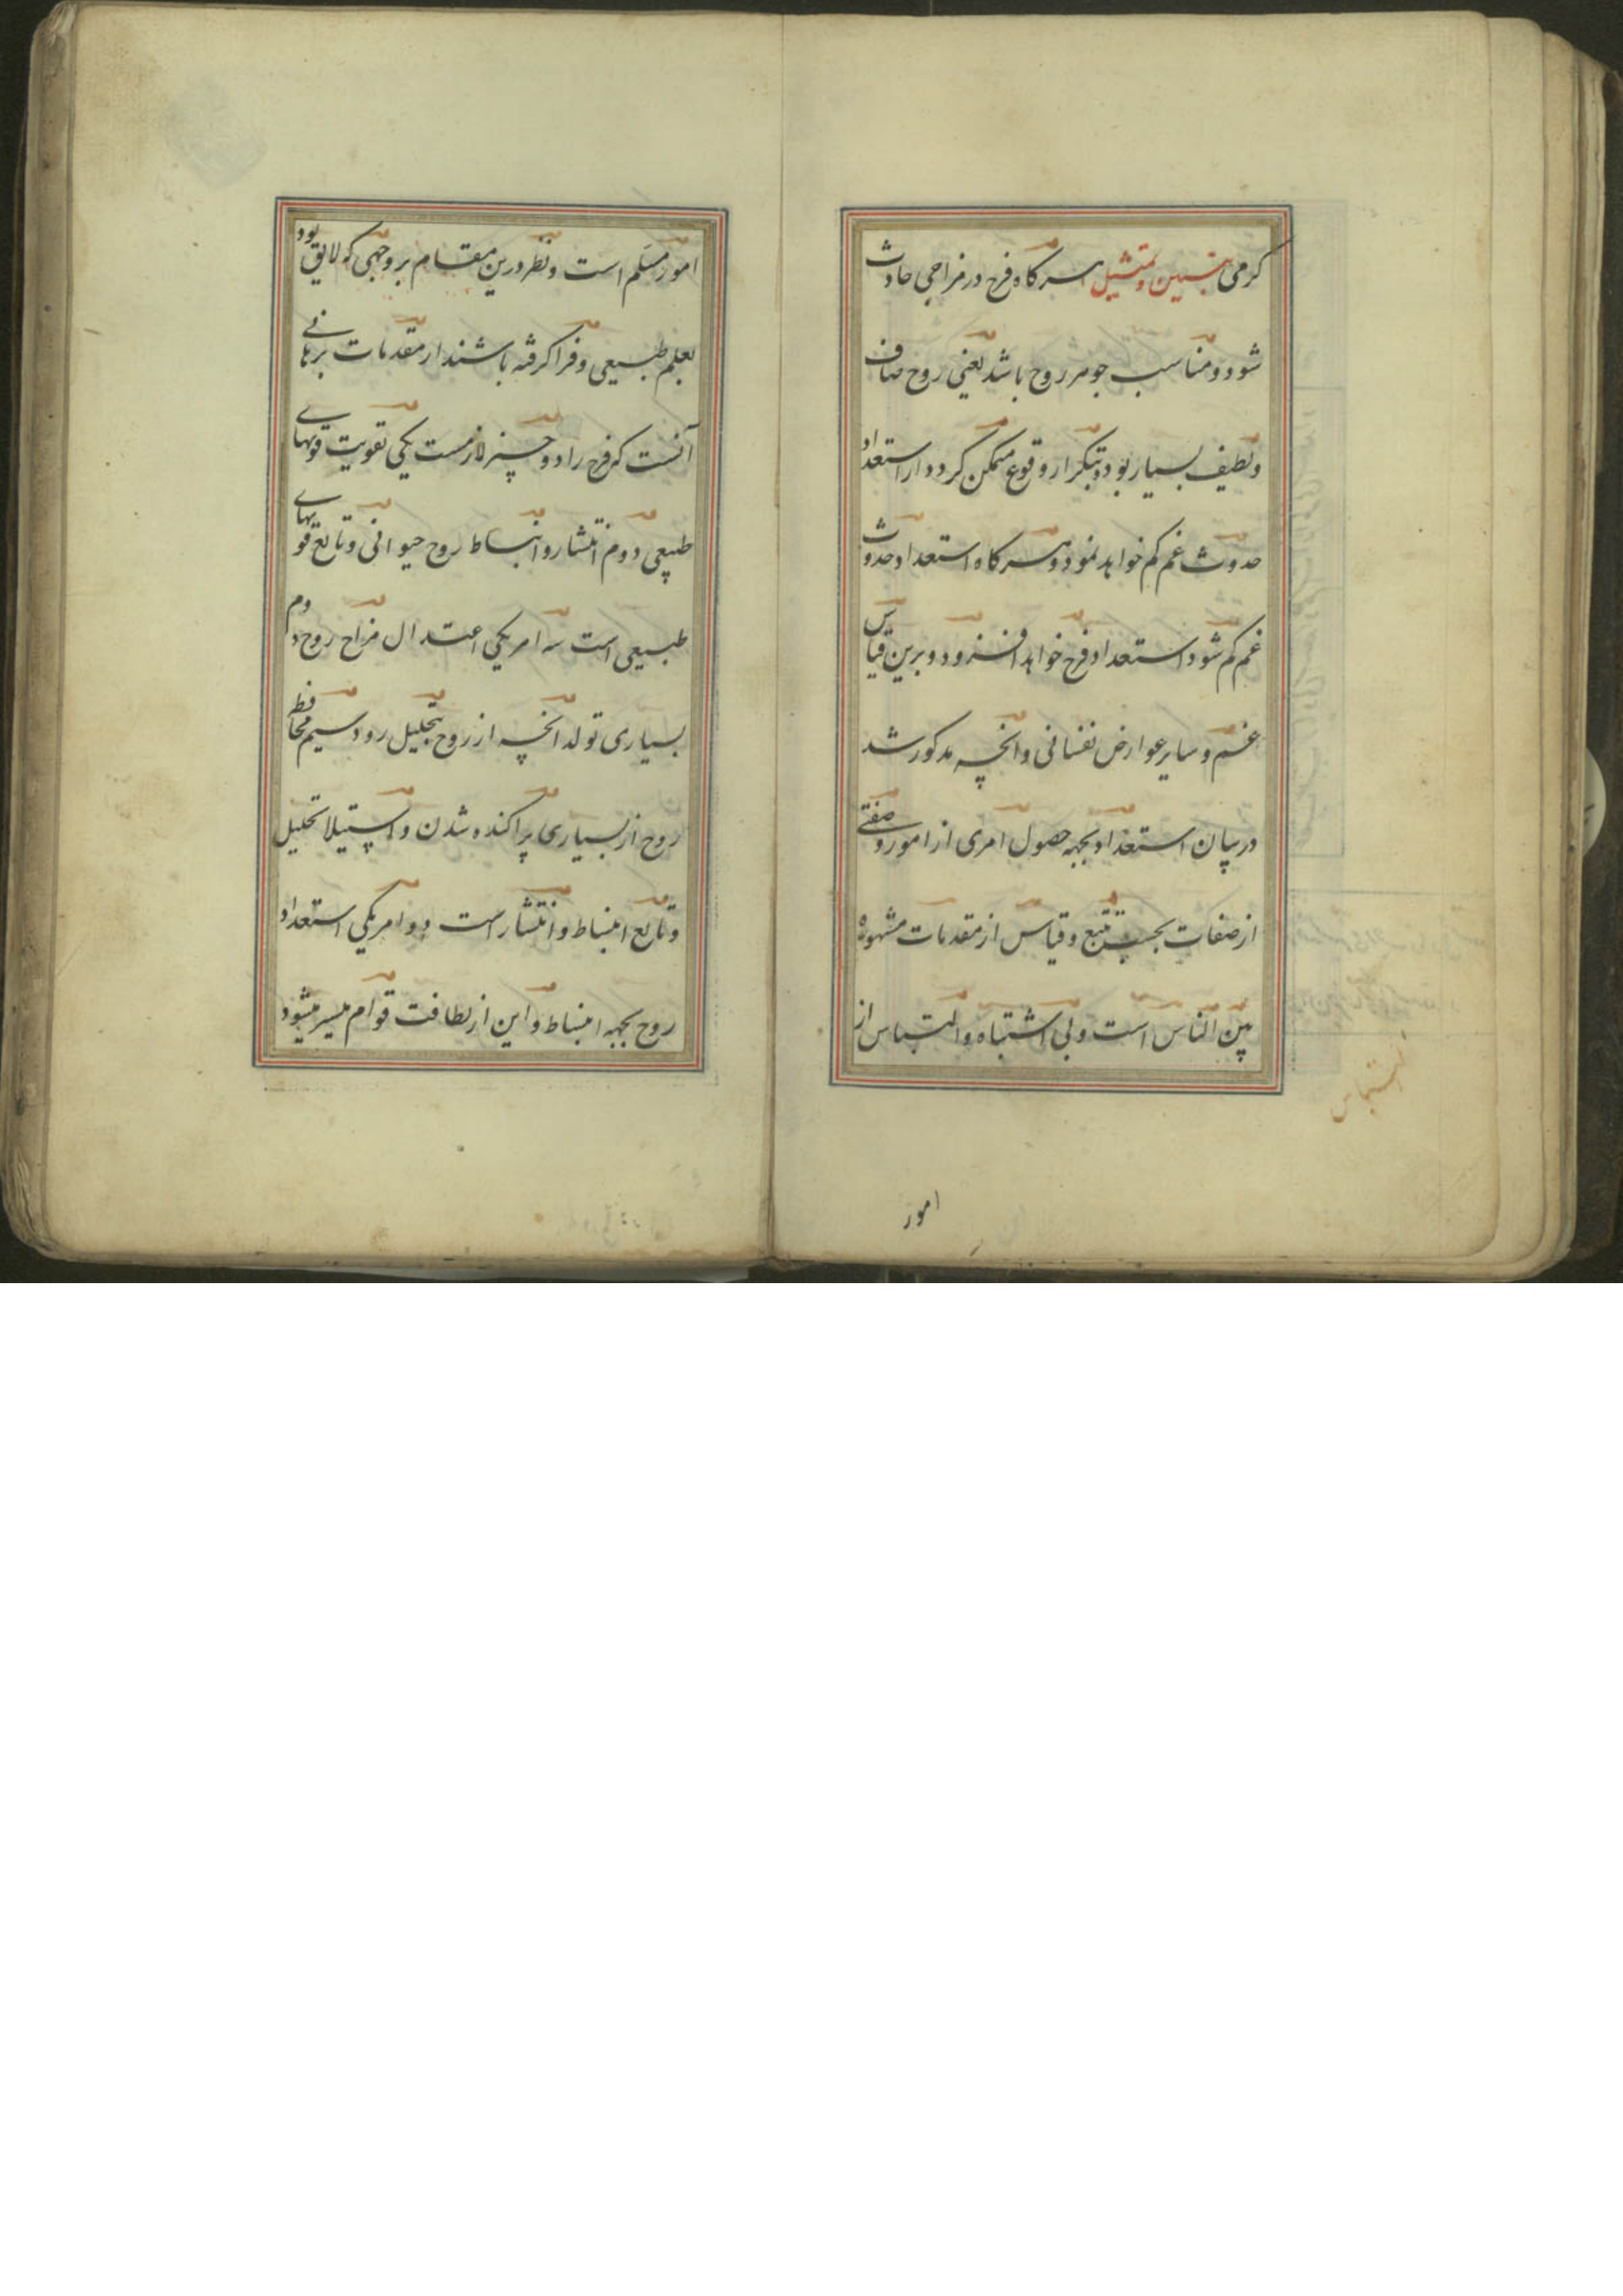 کرمی تبیین و تمثیل هرگاه فرح در مزاجی حادث
شود و مناسب جوهر روح باشد یعنی روح صاف
و لطیف بسیار بود و بتکرار وقوع متمکن کردد از استعداد
حدوث غم کم خواهد نمود و هرگاه استعداد حدوث
غم کم شود استعداد فرح خواهد افزود و برین قیاس
غم و سایر عوارض نفسانی و انچه مذکور شد
در بیان استعداد بجهه حصول امری از امور و صفتی
از صفات بحسب تتبع و قیاس از مقدمات مشهوره
بین الناس است و بی اشتباه و التباس از
التباس
امور
امور مسلم است و نظر درین مقام بر وجهی که لایق بود
بعلم طبیعی و فرا کرفته باشند از مقدمات برهانی
آنست که فرح را دو چیز لازمست یکی تقویت قوتهای
طبیعی دوم انتشار و انبساط روح حیوانی و تابع قوتهای
طبیعی است سه امر یکی اعتدال مزاج روح دوم
بسیاری تولد انچه از روح بتحلیل رود سیم محافظ
روح از بسیاری پراکنده شدن و استیلا تحلیل
و تابع انبساط و انتشار است دو امر یکی استعداد
روح بجهه انبساط و این از لطافت قوام میسر میشود